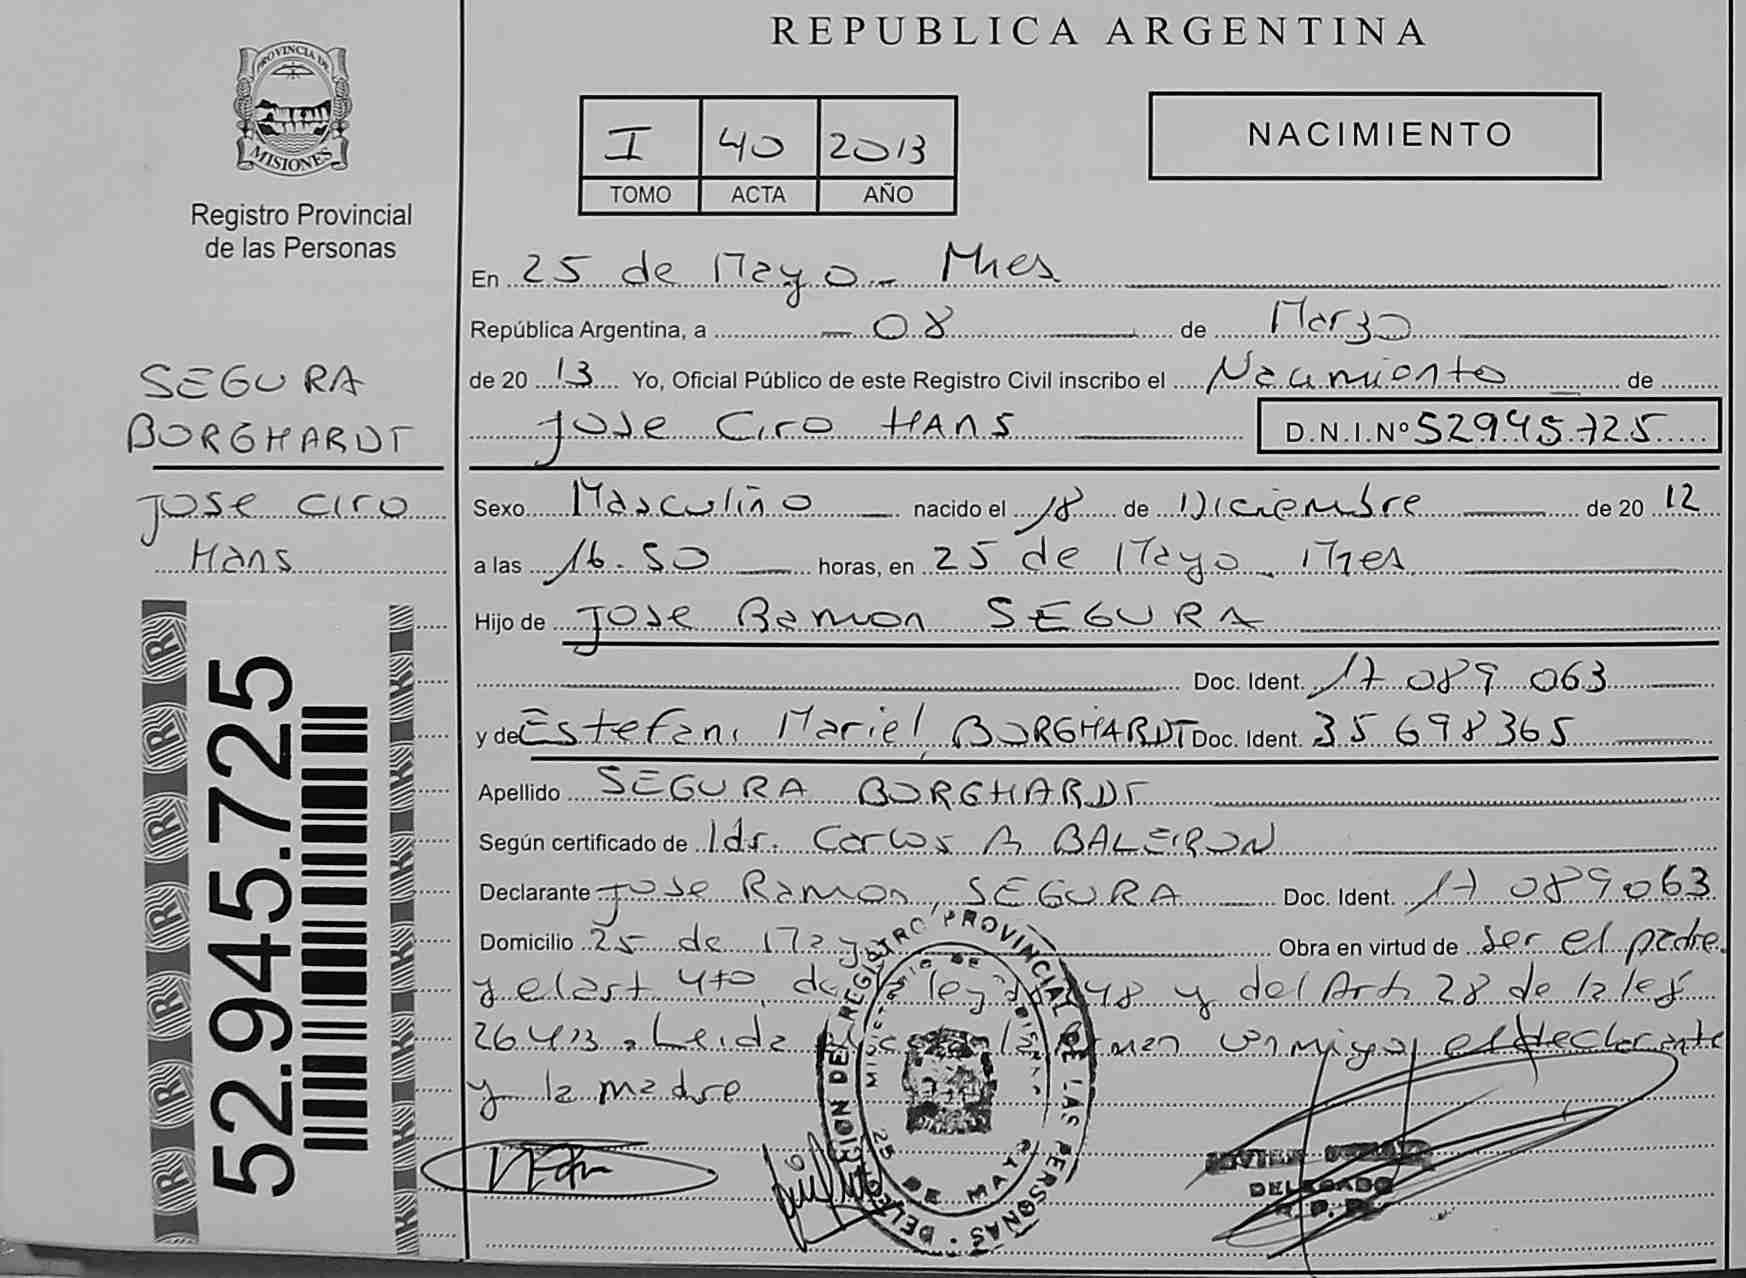 PROVINCIA DE
MISIONES
Registro Provincial
de las Personas
SEGURA
BORGHARDT
Jose Ciro
Hans
52.945.725
REPUBLICA ARGENTINA
I 40 2013
TOMO ACTA AÑO
NACIMIENTO
En 25 de Mayo - Mnes
República Argentina, a 08 de Marzo
de 2013 Yo, Oficial Público de este Registro Civil inscribo el Nacimiento de
Jose Ciro HANS D.N.I.Nº 52945725
Sexo Masculino nacido el 18 de Diciembre de 2012
a las 16.50 horas, en 25 de Mayo - Mnes
Hijo de Jose Ramon SEGURA
Doc. Ident. 17 089 063
y de Estefani Mariel BORGHARDT Doc. Ident. 35 698 365
Apellido SEGURA BORGHARDT
Según certificado de Carlos A BALEIRON
Declarante Jose Ramon SEGURA Doc. Ident. 17 089063
Domicilio 25 de Mayo Obra en virtud de Ser el padre
y el art 4to de la ley 48 y del Art 28 de la ley
26413. Leida el acta la firman conmigo, el declarante
y la madre
DELEGACION DEL REGISTRO PROVINCIAL DE LAS PERSONAS
MINISTERIO DE GOBIERNO
25 DE MAYO
JAVIER
DELEGADO
R. P. P.